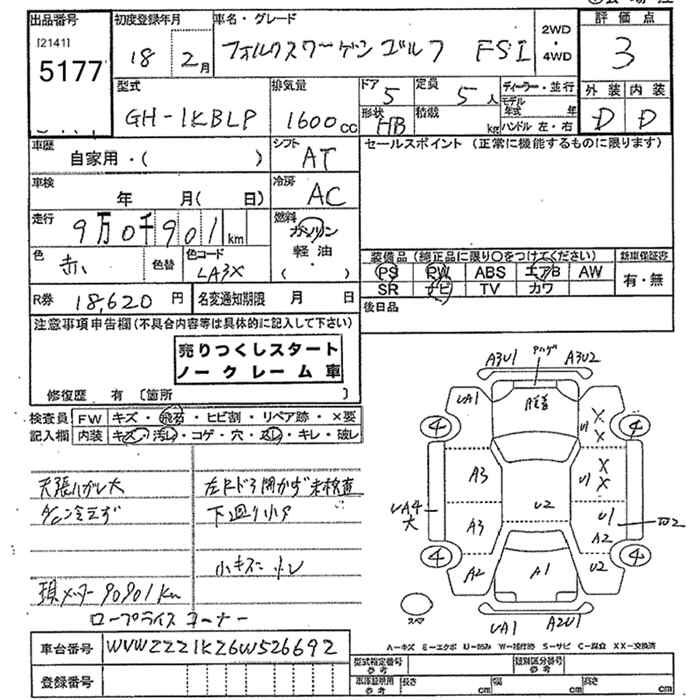 出品番号 初度登録年月 車名・グレード 評価点
[2141] 18 2月 フォルクスワーゲン ゴルフ FSI 2WD・4WD 3
5177
型式 排気量 ドア 定員 ディーラー・並行 外装 内装
GH-1KBLP 1600cc 5 5人 モデル年式 年 D D
形状 HB 積載 kg ハンドル 左・右
車歴 自家用・( ) シフト AT セールスポイント (正常に機能するものに限ります)
車検 年 月( 日) 冷房 AC
走行 9万0千901km 燃料 ガソリン 軽油 ・( )
色 赤 色替 色コード LA3X
装備品 (純正品に限り〇をつけてください) 新車保証書
PS PW ABS エアB AW 有・無
SR ナビ TV カワ
R券 18,620円 名変通知期限 月 日 後日品
注意事項申告欄(不具合内容等は具体的に記入して下さい)
売りつくしスタート
ノークレーム車
修復歴 有 〔箇所 〕
検査員 FW キズ・飛石・ヒビ割・リペア跡・×要
記入欄 内装 キズ・汚レ・コゲ・穴・・キレ・破レ
天張ハガレ大 左Rドア開かず 未検査
A/C冷えず 下廻り小サ
小キズ
現メーター90901km
ロープライスコーナー
A3U1 A3U2
UA1
4 4
U1 X X
A3 U1 X X
UA4 大 U2
A3 U1 A2
4 4
A2 A1 U2
スペア UA1 A2U1
A-キズ E-エクボ U-凹み W-補修跡 S-サビ C-腐食 XX-交換済
車台番号 WVWZZZ1KZ6W526692
型式指定番号 参考 類別区分番号 参考
登録番号 車庫証明用 参考 長さ cm 幅 cm 高さ cm